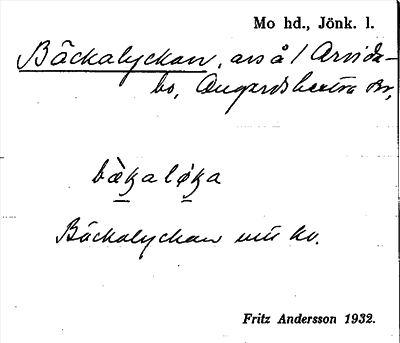 Mo hd., Jönk. l.
Bäckalyckan, avs å / Arvida-
bo, Ångardsbextra sn,
bæ̀ꞣa lø̨ꞣa
Bäckalyckan nu kv.
Fritz Andersson 1932.